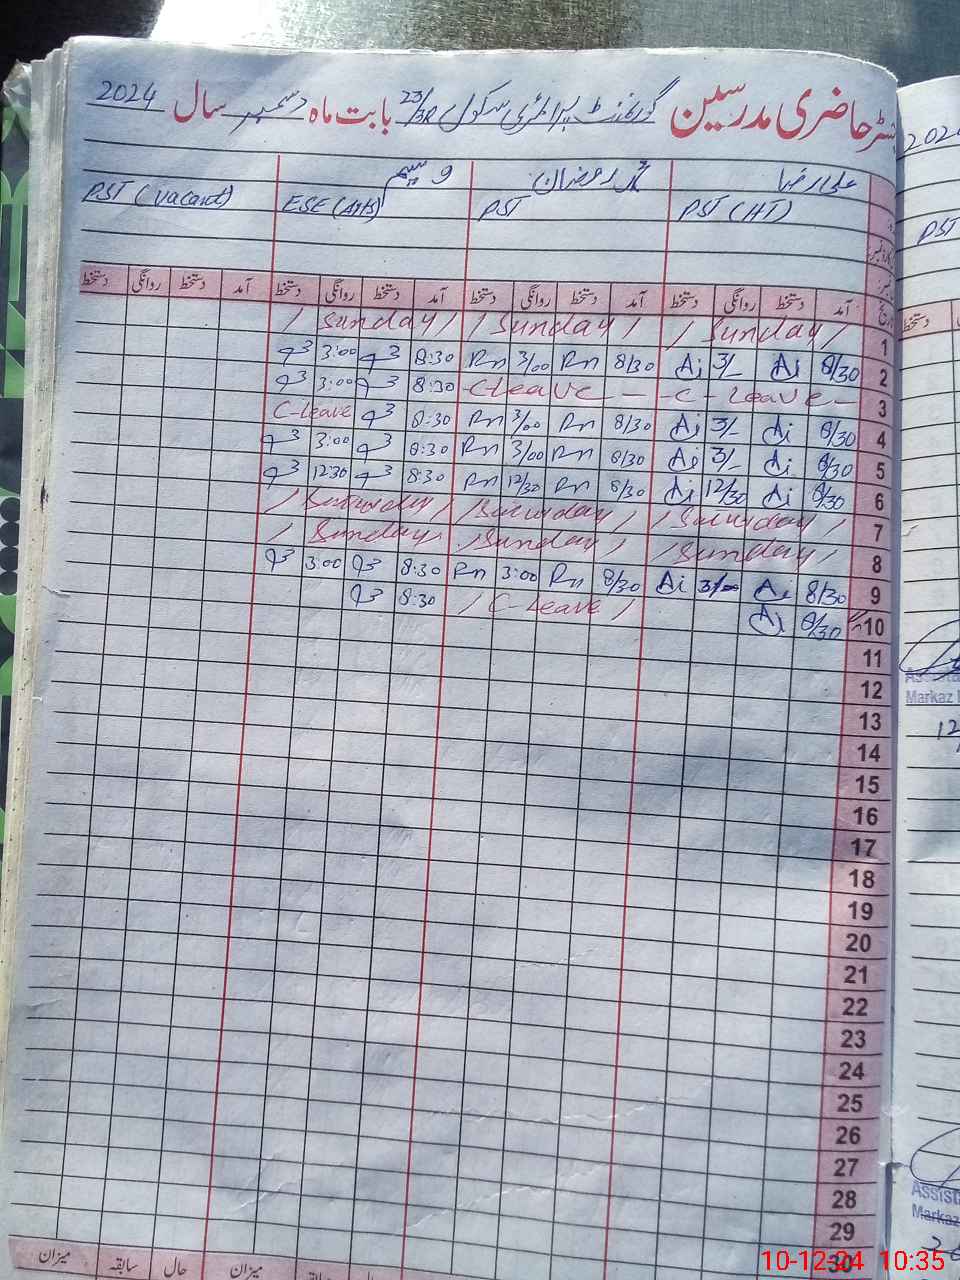 رجسٹر حاضری مدرسین گورنمنٹ پرائمری سکول 23/3R بابت ماہ دسمبر سال 2024
علی رضا محمد رمضان وسیم
PST (HT) PST ESE (Arts) PST (Vacant)
آمد دستخط روانگی دستخط آمد دستخط روانگی دستخط آمد دستخط روانگی دستخط آمد دستخط روانگی دستخط
1 / Sunday / / Sunday / / Sunday /
2 8/30 Ai Ai 3/- 8/30 Rn Rn 3/00 8:30 3:00
3 - C - Leave - C Leave - 8:30 3:00
4 8/30 Ai Ai 3/- 8/30 Rn Rn 3/00 8:30 C-Leave
5 8/30 Ai Ai 3/- 8/30 Rn Rn 3/00 8:30 3:00
6 8/30 Ai Ai 12/30 8/30 Rn Rn 12/30 8:30 12:30
7 / Saturday / / Saturday / / Saturday /
8 / Sunday / / Sunday / / Sunday /
9 8/30 Ai Ai 3/00 8/30 Rn Rn 3:00 8:30 3:00
10 8/30 Ai / C-Leave / 8:30
11
12
13
14
15
16
17
18
19
20
21
22
23
24
25
26
27
28
29
30
میزان حال سابقہ میزان
PST
دستخط
Markaz
Markaz
10-12-24 10:35